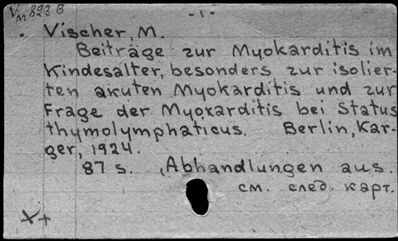 Vм 823 В
- 1 -
Vischer, M.
Beiträge zur Myokarditis im
Kindesalter, besonders zur isolier-
ten akuten Myokarditis und zur
Frage der Myokarditis bei Status
thymolymphaticus. Berlin, Kar-
ger, 1924.
87 s. (Abhandlungen aus.
см. след. карт.